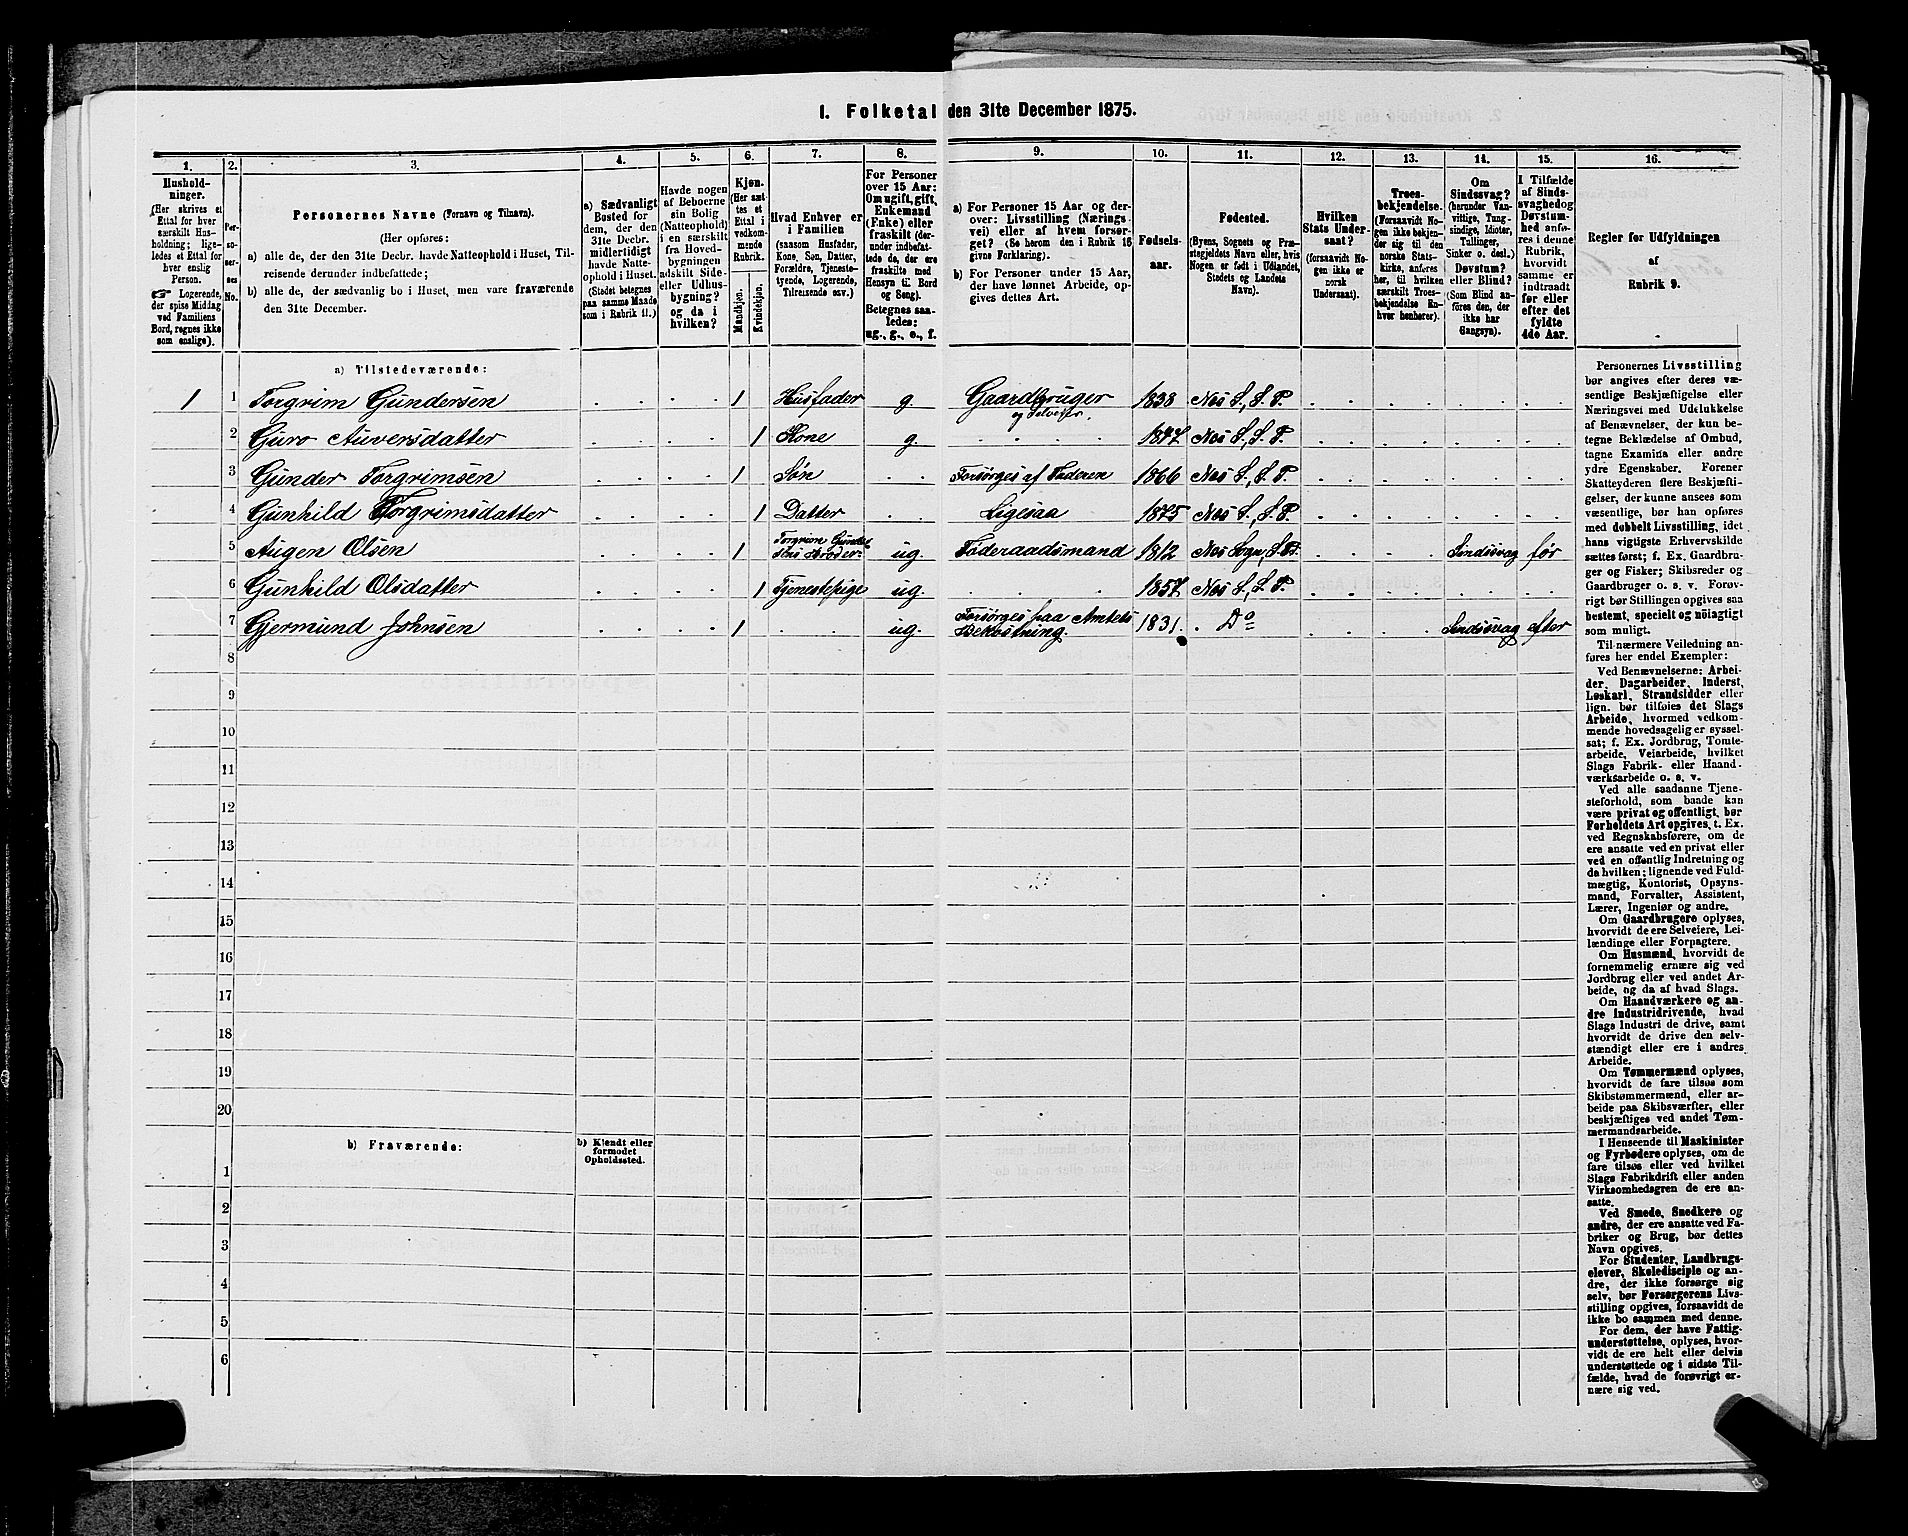 1. Folketal den 31te December 1875.
1.
Hushold-
ninger.
(Her skrives et
Ettal for hver
særskilt Hus-
holdning; lige-
ledes et Ettal for
hver enslig
Person.
☞ Logerende,
der spise Middag
ved Familiens
Bord, regnes ikke
som enslige).
2.
Per-
so-
ner-
nes
No.
3.
Personernes Navne (Fornavn og Tilnavn).
(Her opføres:
a) alle de, der den 31te Decbr. havde Natteophold i Huset, Til-
reisende derunder indbefattede;
b) alle de, der sædvanlig bo i Huset, men vare fraværende
den 31te December.
4.
a) Sædvanligt
Bosted for
dem, der den
31te Decbr.
midlertidigt
havde Natte-
ophold i Huset.
(Stedet betegnes
paa samme Maade
som i Rubrik 11.)
5.
Havde nogen
af Beboerne
sin Bolig
(Natteophold)
i en særskilt
fra Hoved-
bygningen
adskilt Side-
eller Udhus-
bygning?
og da i
hvilken?
6.
Kjøn.
(Her sæt-
tes et
Ettal i
vedkom-
mende
Rubrik.
Mandkjøn.
Kvindekjøn.
7.
Hvad Enhver er
i Familien
(saasom Husfader,
Kone, Søn, Datter,
Forældre, Tjeneste-
tyende, Logerende,
Tilreisende osv.)
8.
For Personer
over 15 Aar:
Om ugift, gift,
Enkemand
(Enke) eller
fraskilt (der-
under indbefat-
tede de, der ere
fraskilte med
Hensyn til Bord
og Seng).
Betegnes saa-
ledes:
ug., g., e., f.
9.
a) For Personer 15 Aar og der-
over: Livsstilling (Nærings-
vei) eller af hvem forsør-
get? (Se herom den i Rubrik 16
givne Forklaring).
b) For Personer under 15 Aar,
der have lønnet Arbeide, op-
gives dettes Art.
10.
Fødsels-
aar.
11.
Fødested.
(Byens, Sognets og Præ-
stegjeldets Navn eller, hvis
Nogen er født i Udlandet,
Stedets og Landets
Navn).
12.
Hvilken
Stats Under-
saat?
(forsaavidt No-
gen ikke er
norsk
Undersaat).
13.
Troes-
bekjendelse.
(Forsaavidt No-
gen ikke bekjen-
der sig til den
norske Stats-
kirke, anføres
her, til hvilken
særskilt Troes-
bekjendelse En-
hver henhører).
14.
Om
Sindssvag?
(herunder Van-
vittige, Tung-
sindige, Idioter,
Tullinger,
Sinker o. desl.)
Døvstum?
eller Blind?
(Som Blind an-
føres den, der
ikke har
Gangsyn).
15.
I Tilfælde
af Sinds-
svaghed og
Døvstum-
hed anfø-
res i denne
Rubrik,
hvorvidt
samme er
indtraadt
før eller
efter det
fyldte
4de Aar.
16.
Regler for Udfyldningen
af
Rubrik 9.
a) Tilstedeværende:
1 1 Torgrim Gundersen 1 Husfader g. Gaardbruger og Selveier. 1838 Nes S., S. P.
2 Guro Auversdatter 1 Kone g 1847 Nes S., S. P.
3 Gunder Torgrimsen 1 Søn Forsørges af Faderen 1866 Nes S., S. P.
4 Gunhild Torgrimsdatter 1 Datter Ligesaa 1875 Nes S., S. P.
5 Augen Olsen 1 Torgrim Gunder-
sens Broder ug. Føderaadsmand 1812 Nes Sogn, S. P. Sindssvag før
6 Gunhild Olsdatter 1 Tjenestepige ug. 1857 Nes S., S. P.
7 Gjermund Johnsen 1 ug. Forsørges paa Amtets
Bekostning. 1831. Do Sindssvag efter
8
9
10
11
12
13
14
15
16
17
18
19
20
b) Fraværende:
b) Kjendt eller
formodet
Opholdssted.
1
2
3
4
5
6
Personernes Livsstilling
bør angives efter deres væ-
sentlige Beskjæftigelse eller
Næringsvei med Udelukkelse
af Benævnelser, der kun be-
tegne Beklædelse af Ombud,
tagne Examina eller andre
ydre Egenskaber. Forener
Skatteyderen flere Beskjæfti-
gelser, der kunne ansees som
væsentlige, bør han opføres
med dobbelt Livsstilling, idet
hans vigtigste Erhvervskilde
sættes først; f. Ex. Gaardbru-
ger og Fisker; Skibsreder og
Gaardbruger o. s. v. Forøv-
rigt bør Stillingen opgives saa
bestemt, specielt og nöiagtigt
som muligt.
Til nærmere Veiledning an-
føres her endel Exempler:
Ved Benævnelserne: Arbei-
der, Dagarbeider, Inderst,
Løskarl, Strandsidder eller
lign. bør tilføies det Slags
Arbeide, hvormed vedkom-
mende hovedsagelig er syssel-
sat; f. Ex. Jordbrug, Tomte-
arbeide, Veiarbeide, hvilket
Slags Fabrik- eller Haand-
værksarbeide o. s. v.
Ved alle saadanne Tjene-
steforhold, som baade kan
være privat og offentligt, bør
Forholdets Art opgives, t. Ex.
ved Regnskabsførere, om de
ere ansatte ved en privat eller
ved en offentlig Indretning og
da hvilken; lignende ved Fuld-
mægtig, Kontorist, Opsyns-
mand, Forvalter, Assistent,
Lærer, Ingeniør og andre.
Om Gaardbrugere oplyses,
hvorvidt de ere Selveiere, Lei-
lændinge eller Forpagtere.
Om Husmænd, hvorvidt de
fornemmelig ernære sig ved
Jordbrug eller ved andet Ar-
beide, og da af hvad Slags.
Om Haandværkere og an-
dre Industridrivende, hvad
Slags Industri de drive, samt
hvorvidt de drive den selv-
stændigt eller ere i andres
Arbeide.
Om Tømmermænd oplyses,
hvorvidt de fare tilsøs som
Skibstømmermænd, eller ar-
beide paa Skibsværfter, eller
beskjæftiges ved andet Tøm-
mermandsarbeide.
I Henseende til Maskinister
og Fyrbødere oplyses, om de
fare tilsøs eller ved hvilket
Slags Fabrikdrift eller anden
Virksomhedsgren de ere an-
satte.
Ved Smede, Snedkere og
andre, der ere ansatte ved Fa-
briker og Brug, bør dettes
Navn opgives.
For Studenter, Landbrugs-
elever, Skoledisciple og an-
dre, der ikke forsørge sig
selv, bør Forsørgerens Livs-
stilling opgives, forsaavidt de
ikke bo sammen med denne.
For dem, der have Fattig-
understøttelse, oplyses, hvor-
vidt de ere helt eller delvis
understøttede og i sidste Til-
fælde, hvad de forøvrigt er-
nære sig ved.